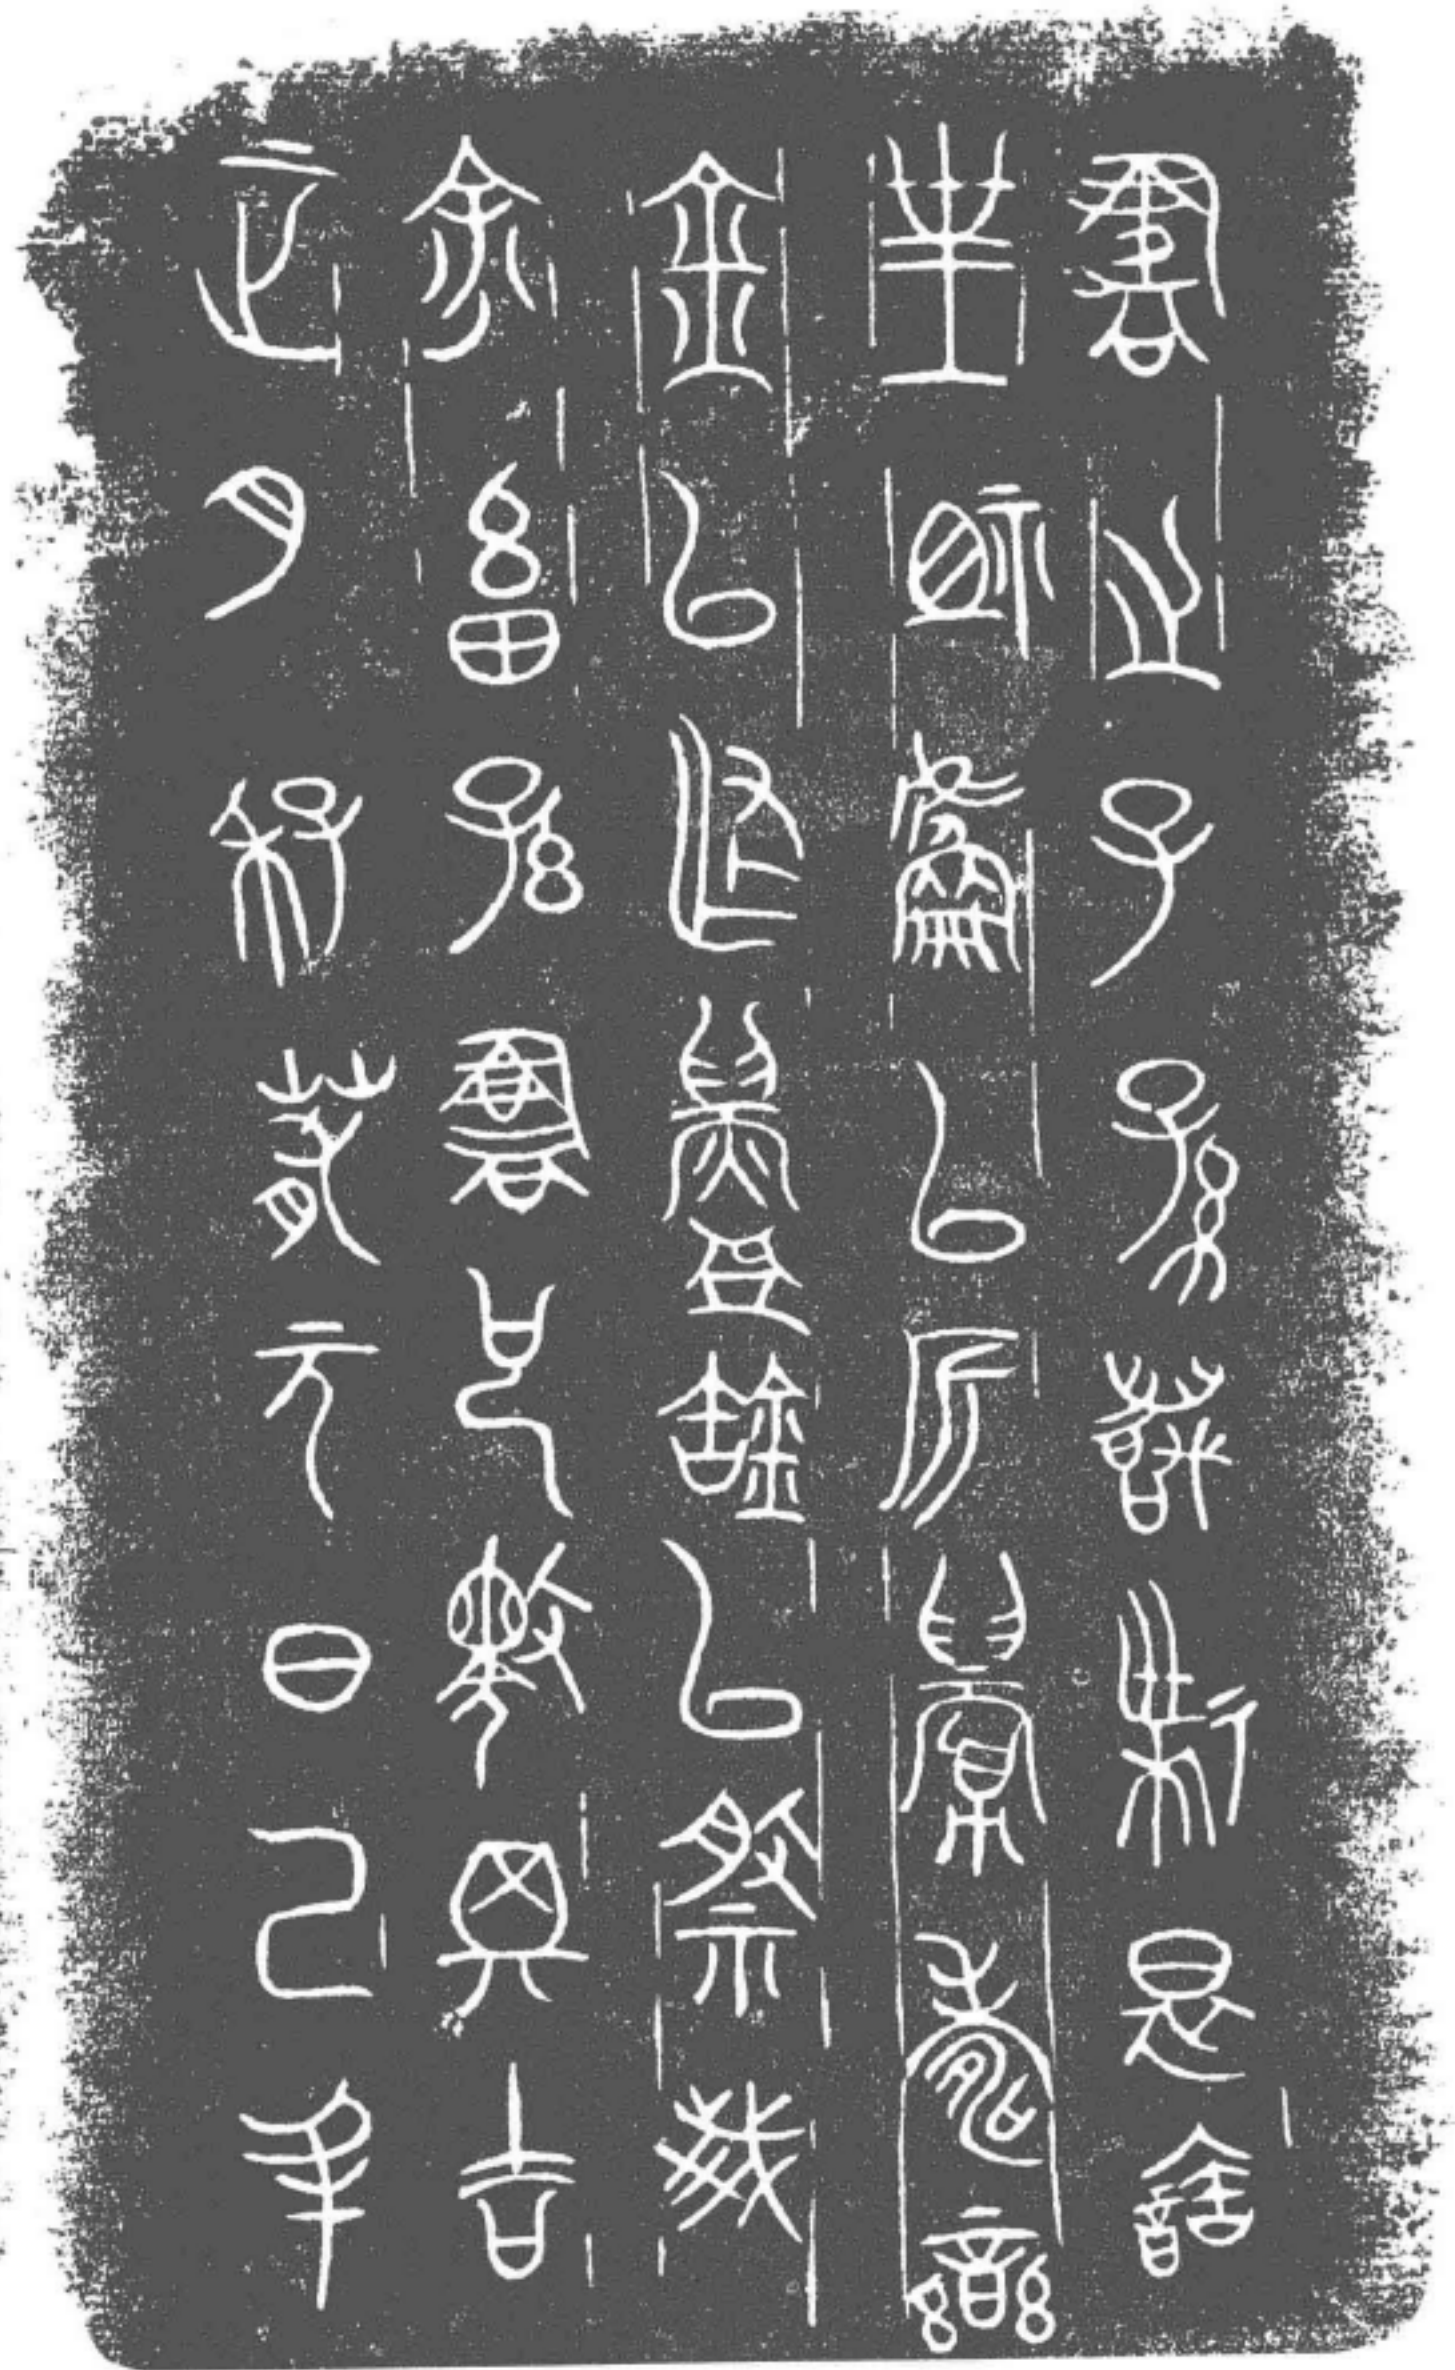 正月季春元日己丑
余畜孫書已擇其吉
金以作鑄缶以祭我
皇祖余以祈眉壽欒
書之子孫萬世是寶